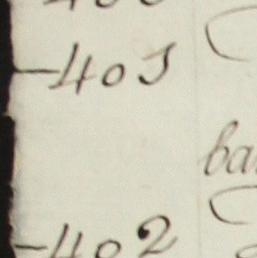 -401
ba
-402